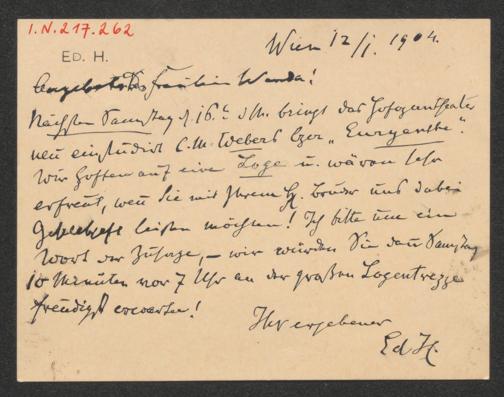 I.N. 217.262
ED. H.
Wien 12/I. 1904.
Angebetetes Fräulein Wanda!
Nächsten Samstag d. 16. d. M. bringt das Hofoperntheater
neu einstudirt C. M. Webers Oper „Euryanthe".
Wir hoffen auf eine Loge u. wären sehr
erfreut, wenn Sie mit Ihrem H. Bruder uns dabei
Gesellschaft leisten möchten! Ich bitte um ein
Wort der Zusage, – wir würden Sie dann Samstag
10 Minuten vor 7 Uhr an der großen Logentreppe
freudigst erwarten!
Ihr ergebener
Ed H.